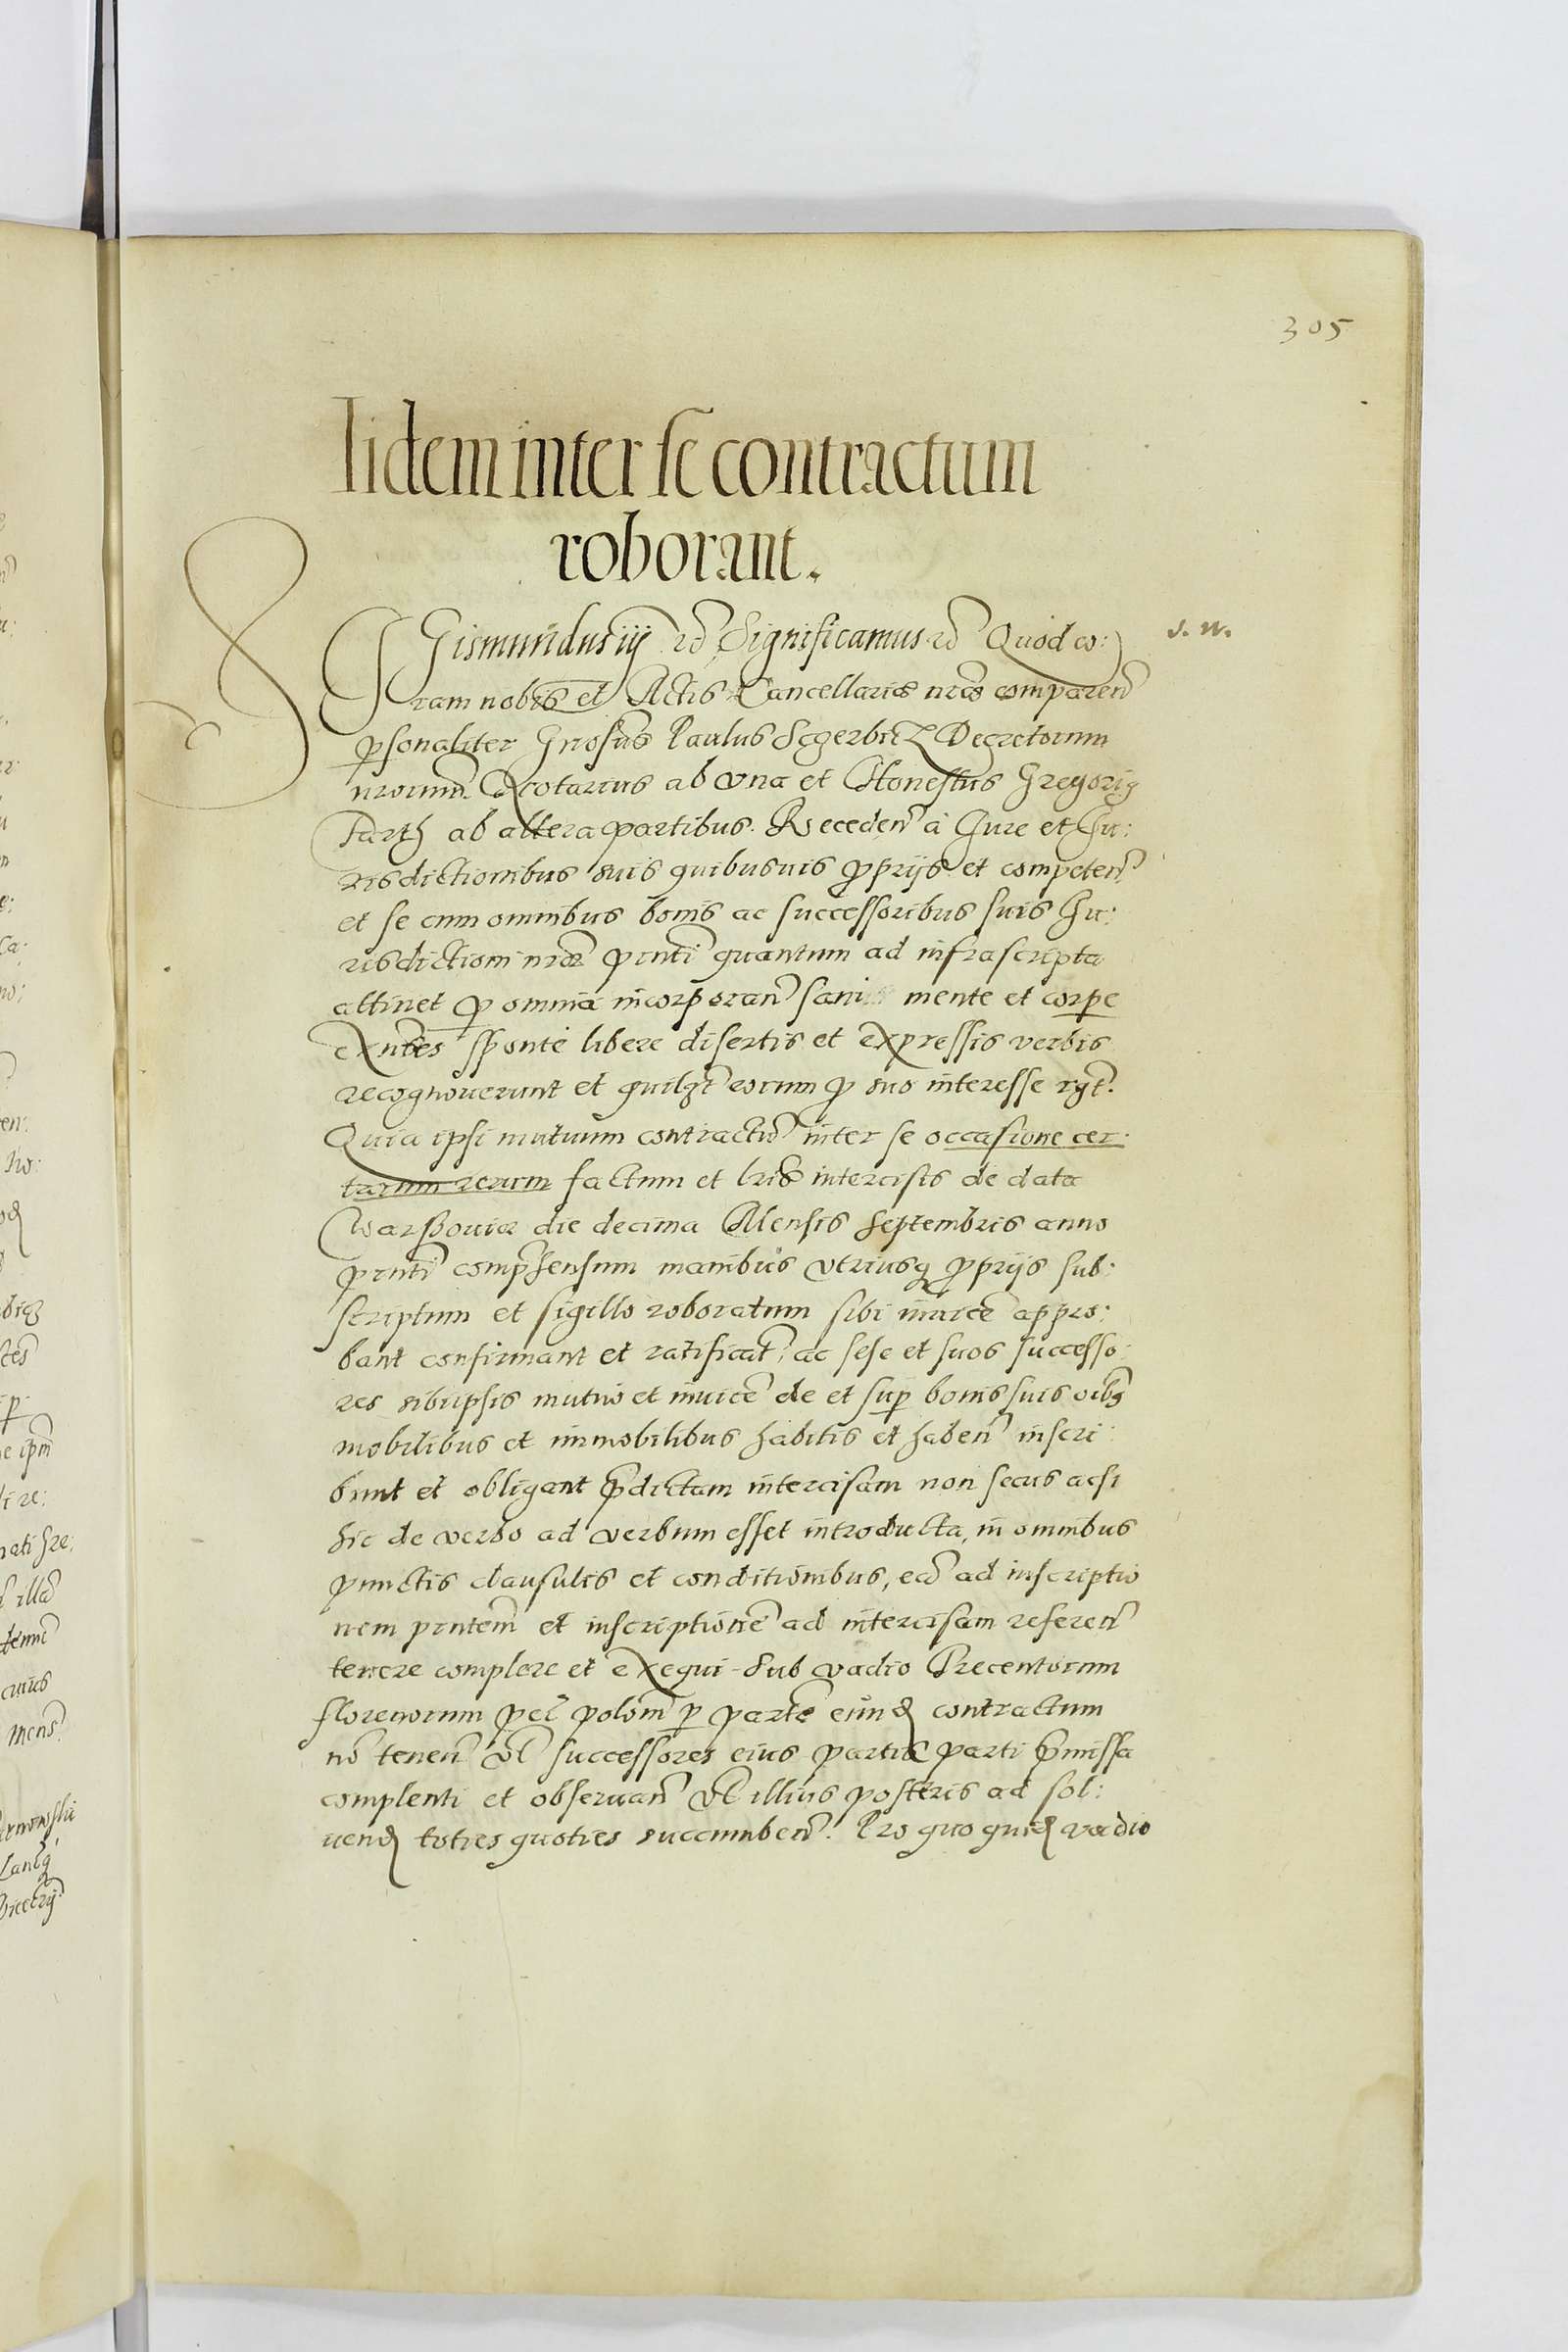 305
Iidem inter se contractum
roborant.
SGismundus iij etc. Significamus etc. Quod co:
ram nobis et Actis Cancellariæ nrae comparen
psonaliter Gnosus Paulus Sczerbicz Decretorum
nrorum Notarius ab una et Honestus Gregorig
Parth ab altera partibus. Receden à Jure et Ju:
risdictionibus suis quibusuis pprijs et competen
et se cum omnibus bonis ac successoribus suis Ju:
risdictioni nræ pnti quantum ad infrascripta
attinet p omnia incorporan sani mente et corpe
exntes sponte libere disertis et expressis verbis
recognouerunt et quilzt eorum p suo interesse rgt.
Quia ipsi mutuum contractu inter se occasione cer:
tarum rerum factum et lris intercisis de data
Warssouiæ die decima Mensis Septembris anno
pnti comprhensum manibus vtriusq pprijs sub:
scriptum et sigillo roboratum sibi inuice appro:
bant confirmant et ratificat, ac sese et suos successo:
res sibiipsis mutuo et inuice de et sup bonis suis oibg
mobilibus et immobilibus habitis et haben inscri:
bunt et obligant pdictam intercisam non secus acsi
hic de verbo ad verbum esset introducta, in omnibus
punctis clausulis et conditionibus, ea ad inscriptio
nem pntem et inscriptione ad intercisam referen
tenere complere et exequi sub vadio Trecentorum
florenorum pec polon p parte eund contractum
no tenen vl successores eius partis parti pmissa
complenti et obseruan vl illius posteris ad sol:
uend toties quoties succumben. Pro quo quid vadio
s. n.